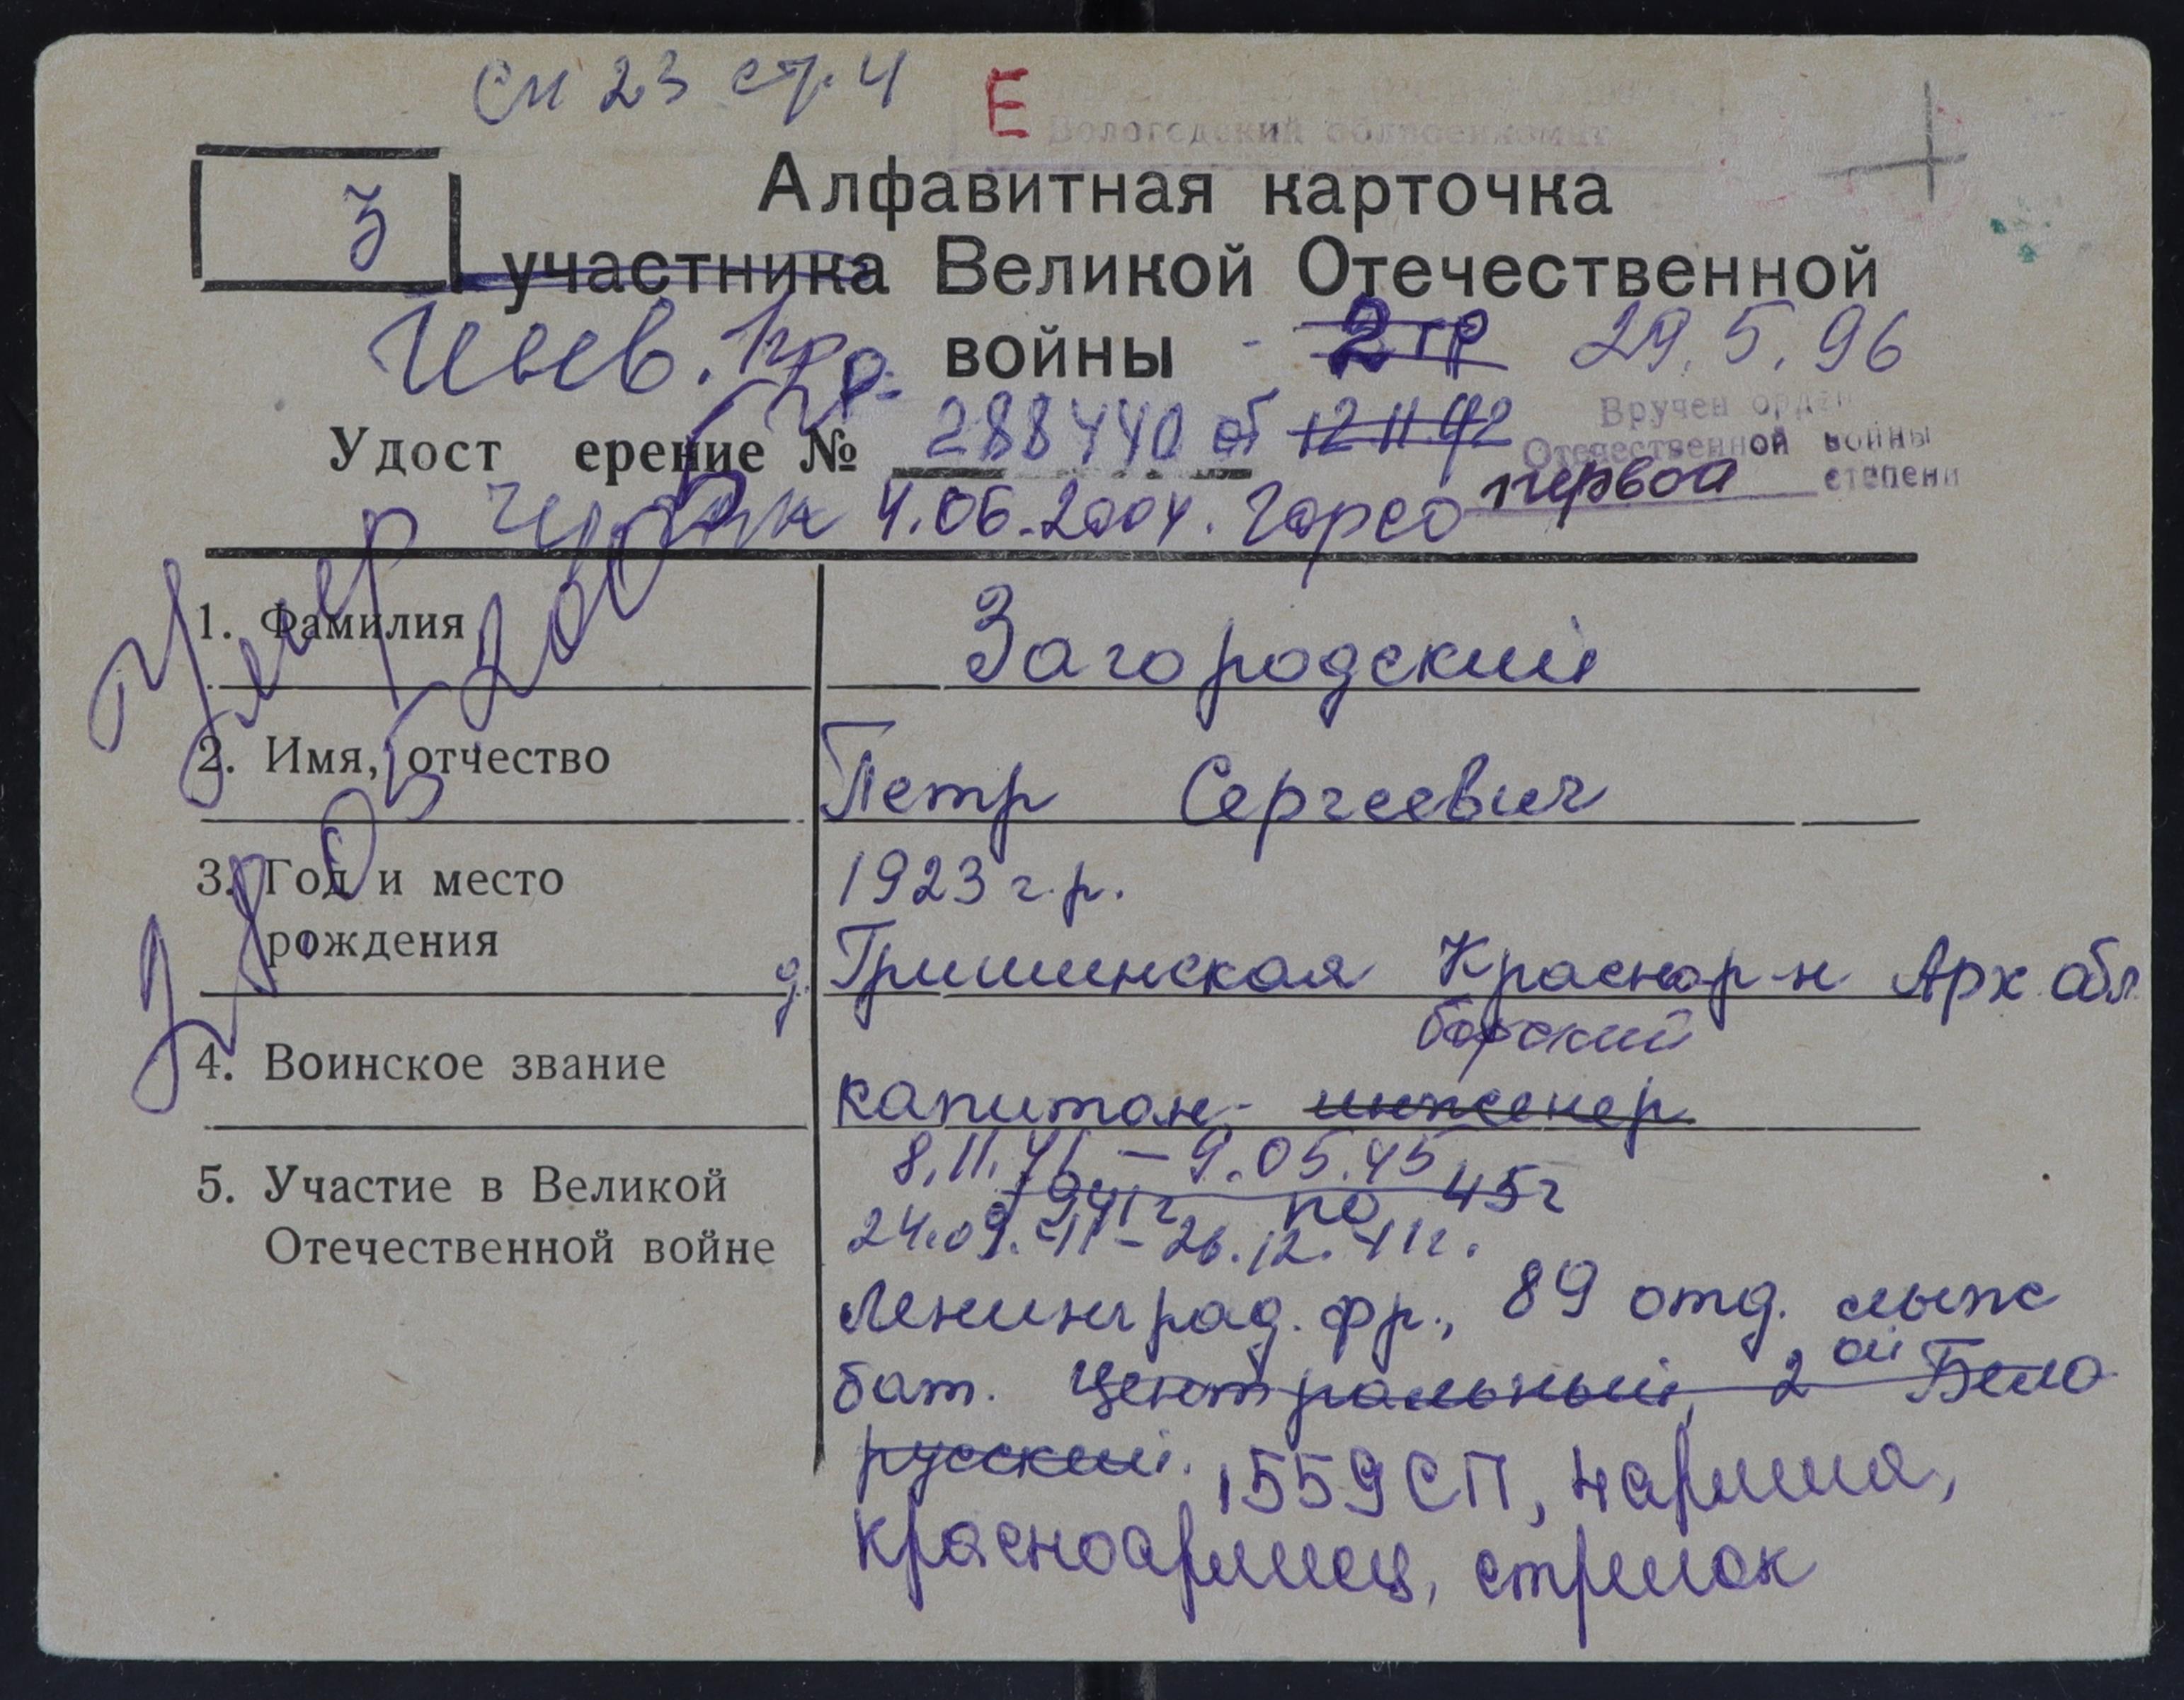 сп 23 стр. 4 Е
Вологодский облвоенкомат
З
Алфавитная карточка
участника Великой Отечественной
Инв. 1 гр. войны - 2 гр 29.5.96
Удост ерение № 288440 от 12.11.92
Вручен орден
Отечественной войны
первой степени
4.06.2004. Горсо
Умер
1. Фамилия Загородский
2. Имя, отчество Петр Сергеевич
3. Год и место рождения 1923 г.р.
д. Гришинская Красно р-н Арх обл
борский
4. Воинское звание капитан- инженер
5. Участие в Великой Отечественной войне
8.11.41 – 9.05.45
1941г по 45г
24.09.41 – 26.12.41г.
Ленинград. фр., 89 отд. лыж
бат. Центральный, 2ой Бело
русский. 1559 СП, 4 армия,
красноармеец, стрелок